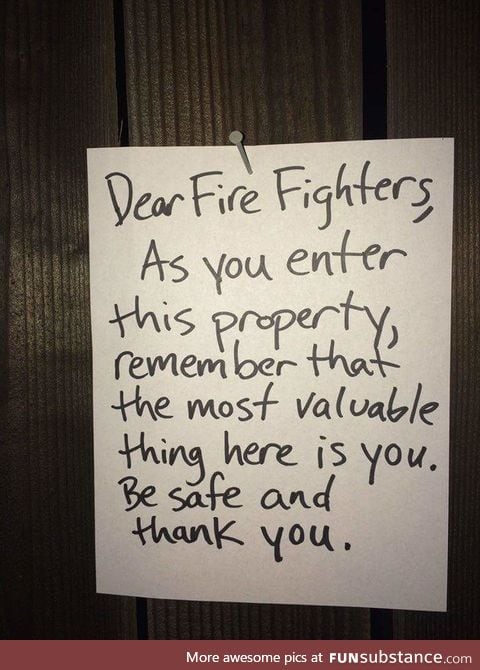 Dear Fire Fighters,
As you enter
this property,
remember that
the most valuable
thing here is you.
Be safe and
thank you.
More awesome pics at FUNsubstance.com